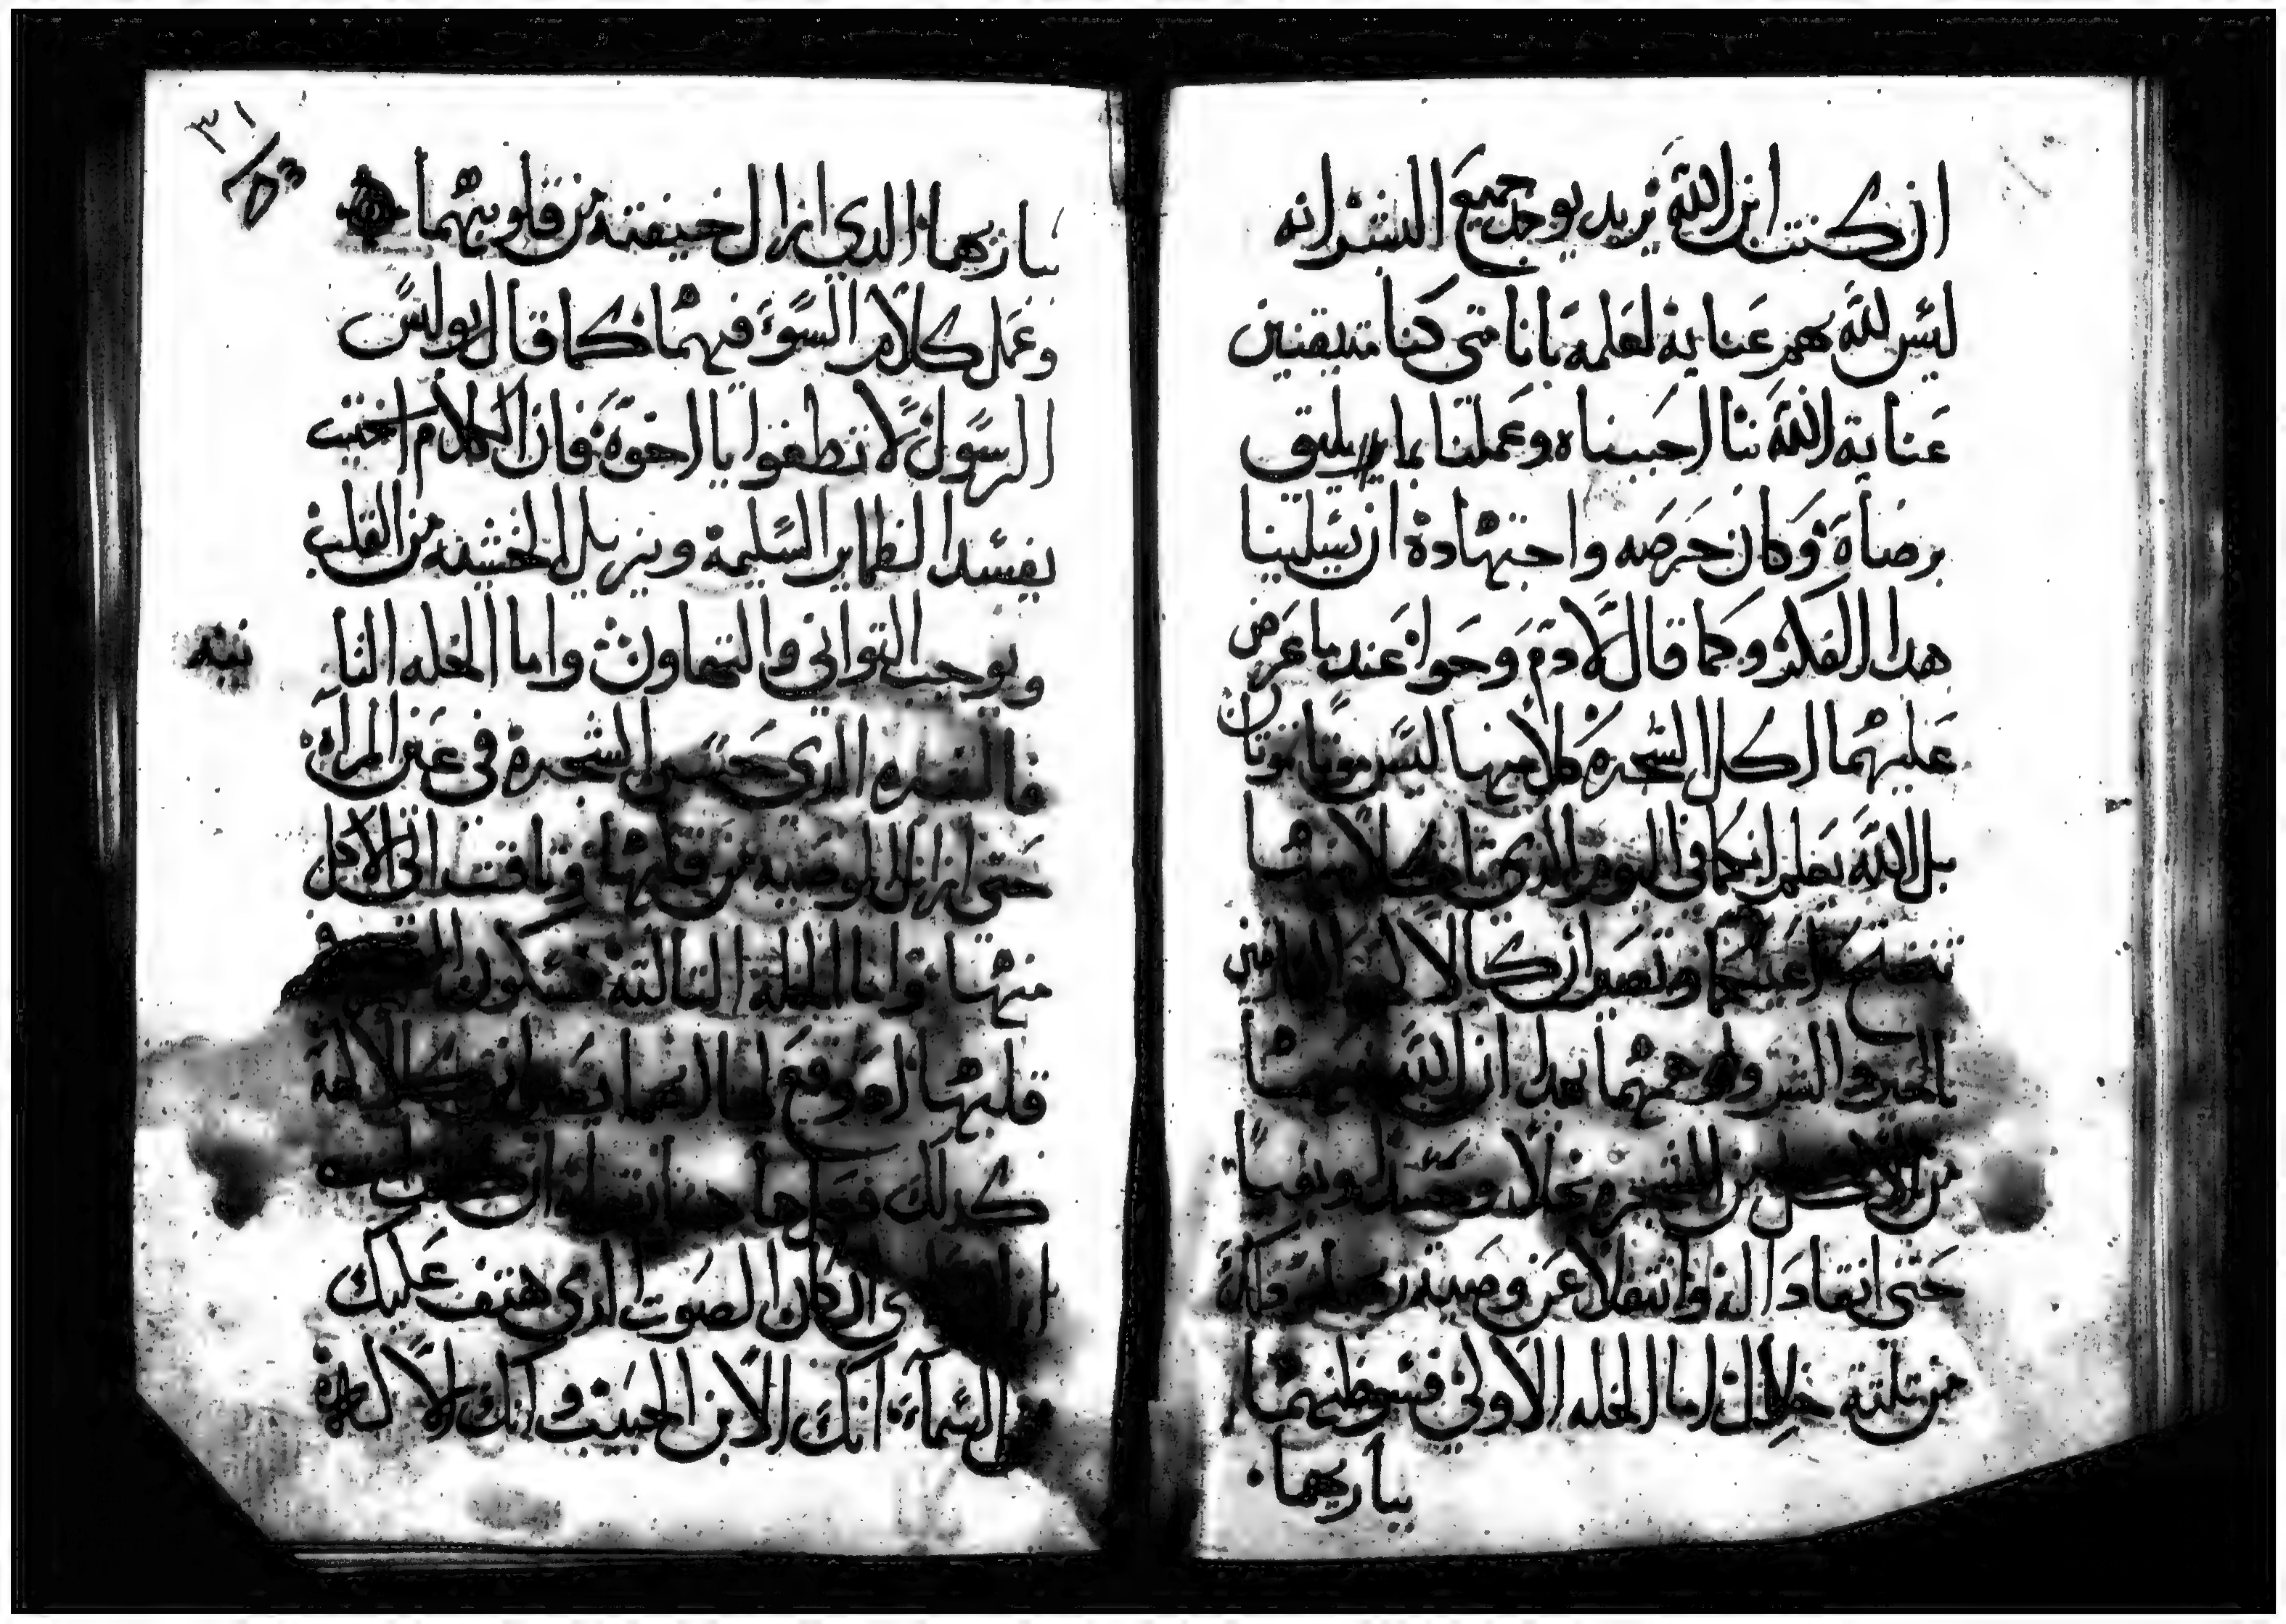 ان كنت ابن الله تريد يوجد جميع البشر انه
ليس لله بهم عناية لعلمه باننا متى كنا متيقنين
عناية الله بنا احببناه وعملنا بما يليق
برضاه وكان حرصه واجتهاده ان يسلبنا
هدا الفكر وكما قال لادم وحوا عند ما عرض
عليهما اكل الشجرة كلا منها ليس موتا تموتان
بل الله يعلم انكما فى اليوم الدى تاكلا منها
تنفتح اعينكما وتصيران كالالهة عارفين
بالخير والشر واوهمهما بهدا ان الله منعهما
من الاكل من الشجرة بخلا وحسدا وبغيا
حتى انقادا له وانتقلا عن وصية ربهما وكان
من تلتة خلال اما الخله الاولى فسوظنهما
بباريهما
بباريهما الدي ازال خيفته من قلوبهما
وعمل كلام السوء فيهما كما قال بولس
الرسول لا تطغوا يا اخوة فان الكلام الخبيت
يفسد الضماير السليمة ويزيل الخشيه من القلب
ويوجب التواني والتهاون واما الخله التا
نيه
فالشره الدي حسن الشجرة فى عين المراه
حتى ازال الوصيه من قلبها وتاقت الى الاكل
منها واما الخلة التالتة فسكون
قلبها اد وقع لها انهما يصيران كالالهة
كدلك
ان كان الصوت الدى هتف عليك
من السماء انك الابن الحبيب وانك الاله